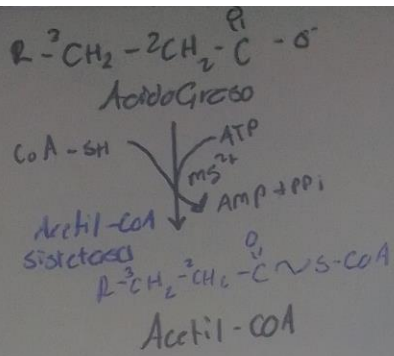 O
R-³CH₂-²CH₂-C-O⁻
Acido Graso
CoA-SH
ATP
Mg²⁺
AMP+PPi
Acetil-CoA
sistetasa
O
R-³CH₂-²CH₂-C~S-CoA
Acetil-COA